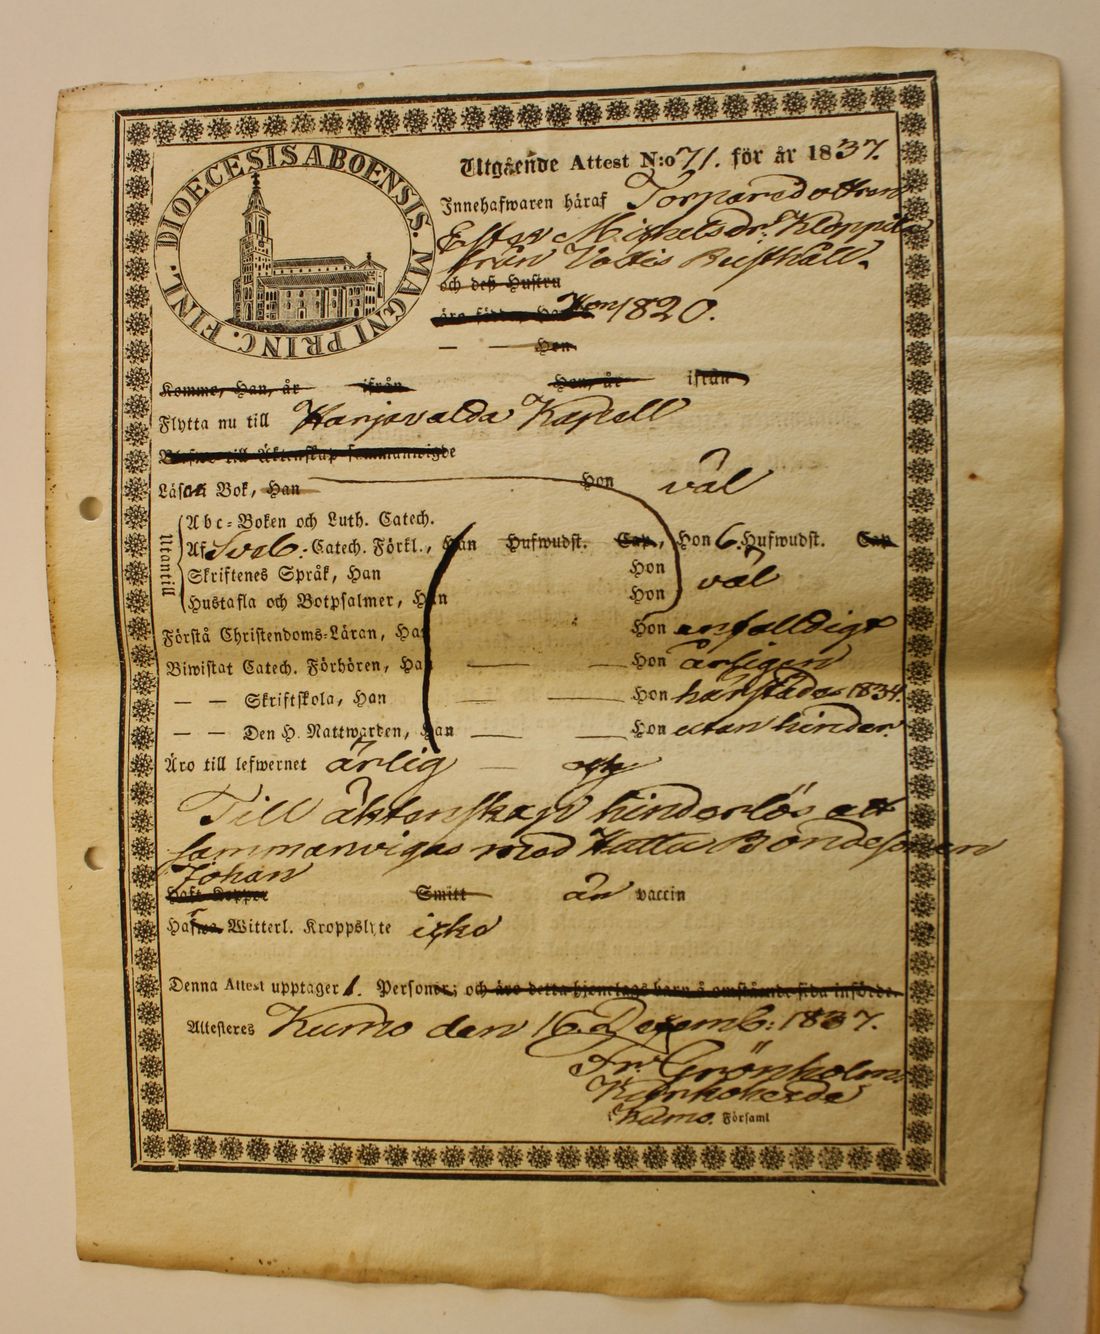 DIOECESIS ABOENSIS. MAGNI PRINC. FINL.
Utgående Attest N:o 71. för år 1837.
Innehafwaren häraf Torparedottren
Ester Michelsdr. Kloppila
från Voitis Rusthåll.
och deß Hustru
Hon 1820.
— — Hon
Komne, Han, år ifrån Hon, år ifrån
Flytta nu till Harjavalda Kapell
till Äktenskap sammanwigde
Läser i Bok, Han Hon väl
Utantill
Abc-Boken och Luth. Catech.
Af Sveb. Catech. Förkl., Han Hufwudst. Cap., Hon 6 Hufwudst. Cap
Skriftenes Språk, Han Hon väl
Hustafla och Botpsalmer, Han Hon
Förstå Christendoms-Läran, Han Hon enfaldigt
Biwistat Catech. Förhören, Han Hon årligen
— — Skriftskola, Han Hon härstädes 1834.
— — Den H. Nattwarden, Han Hon utan hinder
Äro till lefwernet ärlig —
Till äktenskap hinderlös att
sammanvigas med Bondesonen
Johan
Haft Koppor Smitt är vaccin
Hafwa Witterl. Kroppslyte icke
Denna Attest upptager 1. Personer; och äro detta hjonelags barn å omstående sida införde.
Attesteras Kumo den 16. Decemb: 1837.
Fr. Grönholm
Kyrkoherde
i Kumo. Församl